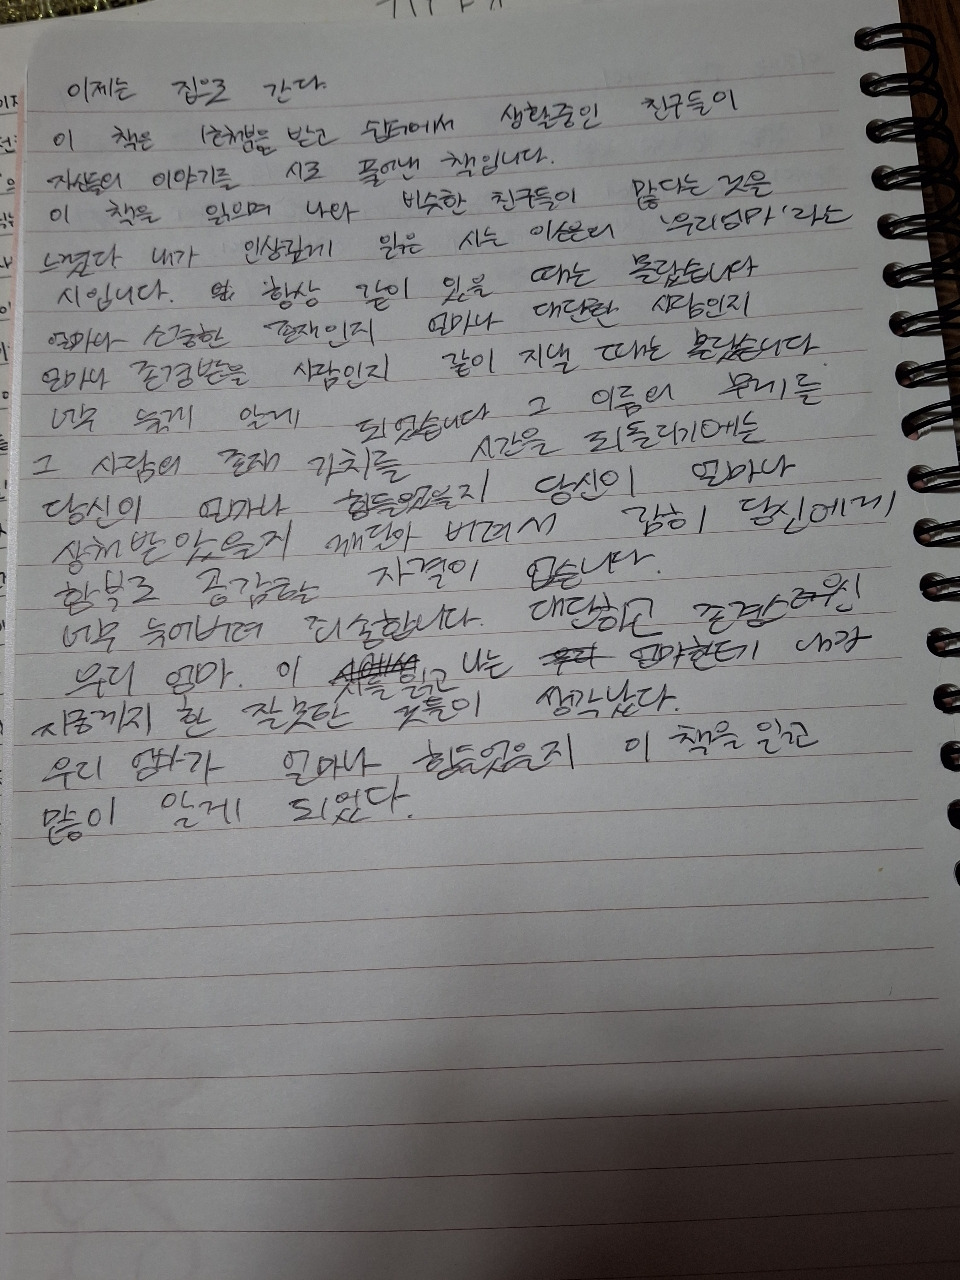 이제는 집으로 간다.
이 책은 1호처분을 받고 쉼터에서 생활중인 친구들이
자신들의 이야기를 시로 풀어낸 책입니다.
이 책을 읽으며 나와 비슷한 친구들이 많다는 것을
느꼈다 내가 인상깊게 읽은 시는 '우리엄마'라는
시입니다. 항상 같이 있을 때는 몰랐습니다
얼마나 소중한 존재인지 얼마나 대단한 사람인지
얼마나 존경받을 사람인지 같이 지낼 때는 몰랐습니다
너무 늦게 알게 되었습니다 그 이름의 무게를
그 사람의 존재 가치를 시간을 되돌리기에는
당신이 얼마나 힘들었을지 당신이 얼마나
상처받았을지 깨달아 버려서 감히 당신에게
함부로 공감할 자격이 없습니다.
너무 늦어버려 죄송합니다. 대단하고 존경스러우신
우리 엄마. 이 시를 읽고 나는 엄마한테 내가
지금까지 한 잘못한 것들이 생각났다.
우리 엄마가 얼마나 힘들었을지 이 책을 읽고
많이 알게 되었다.